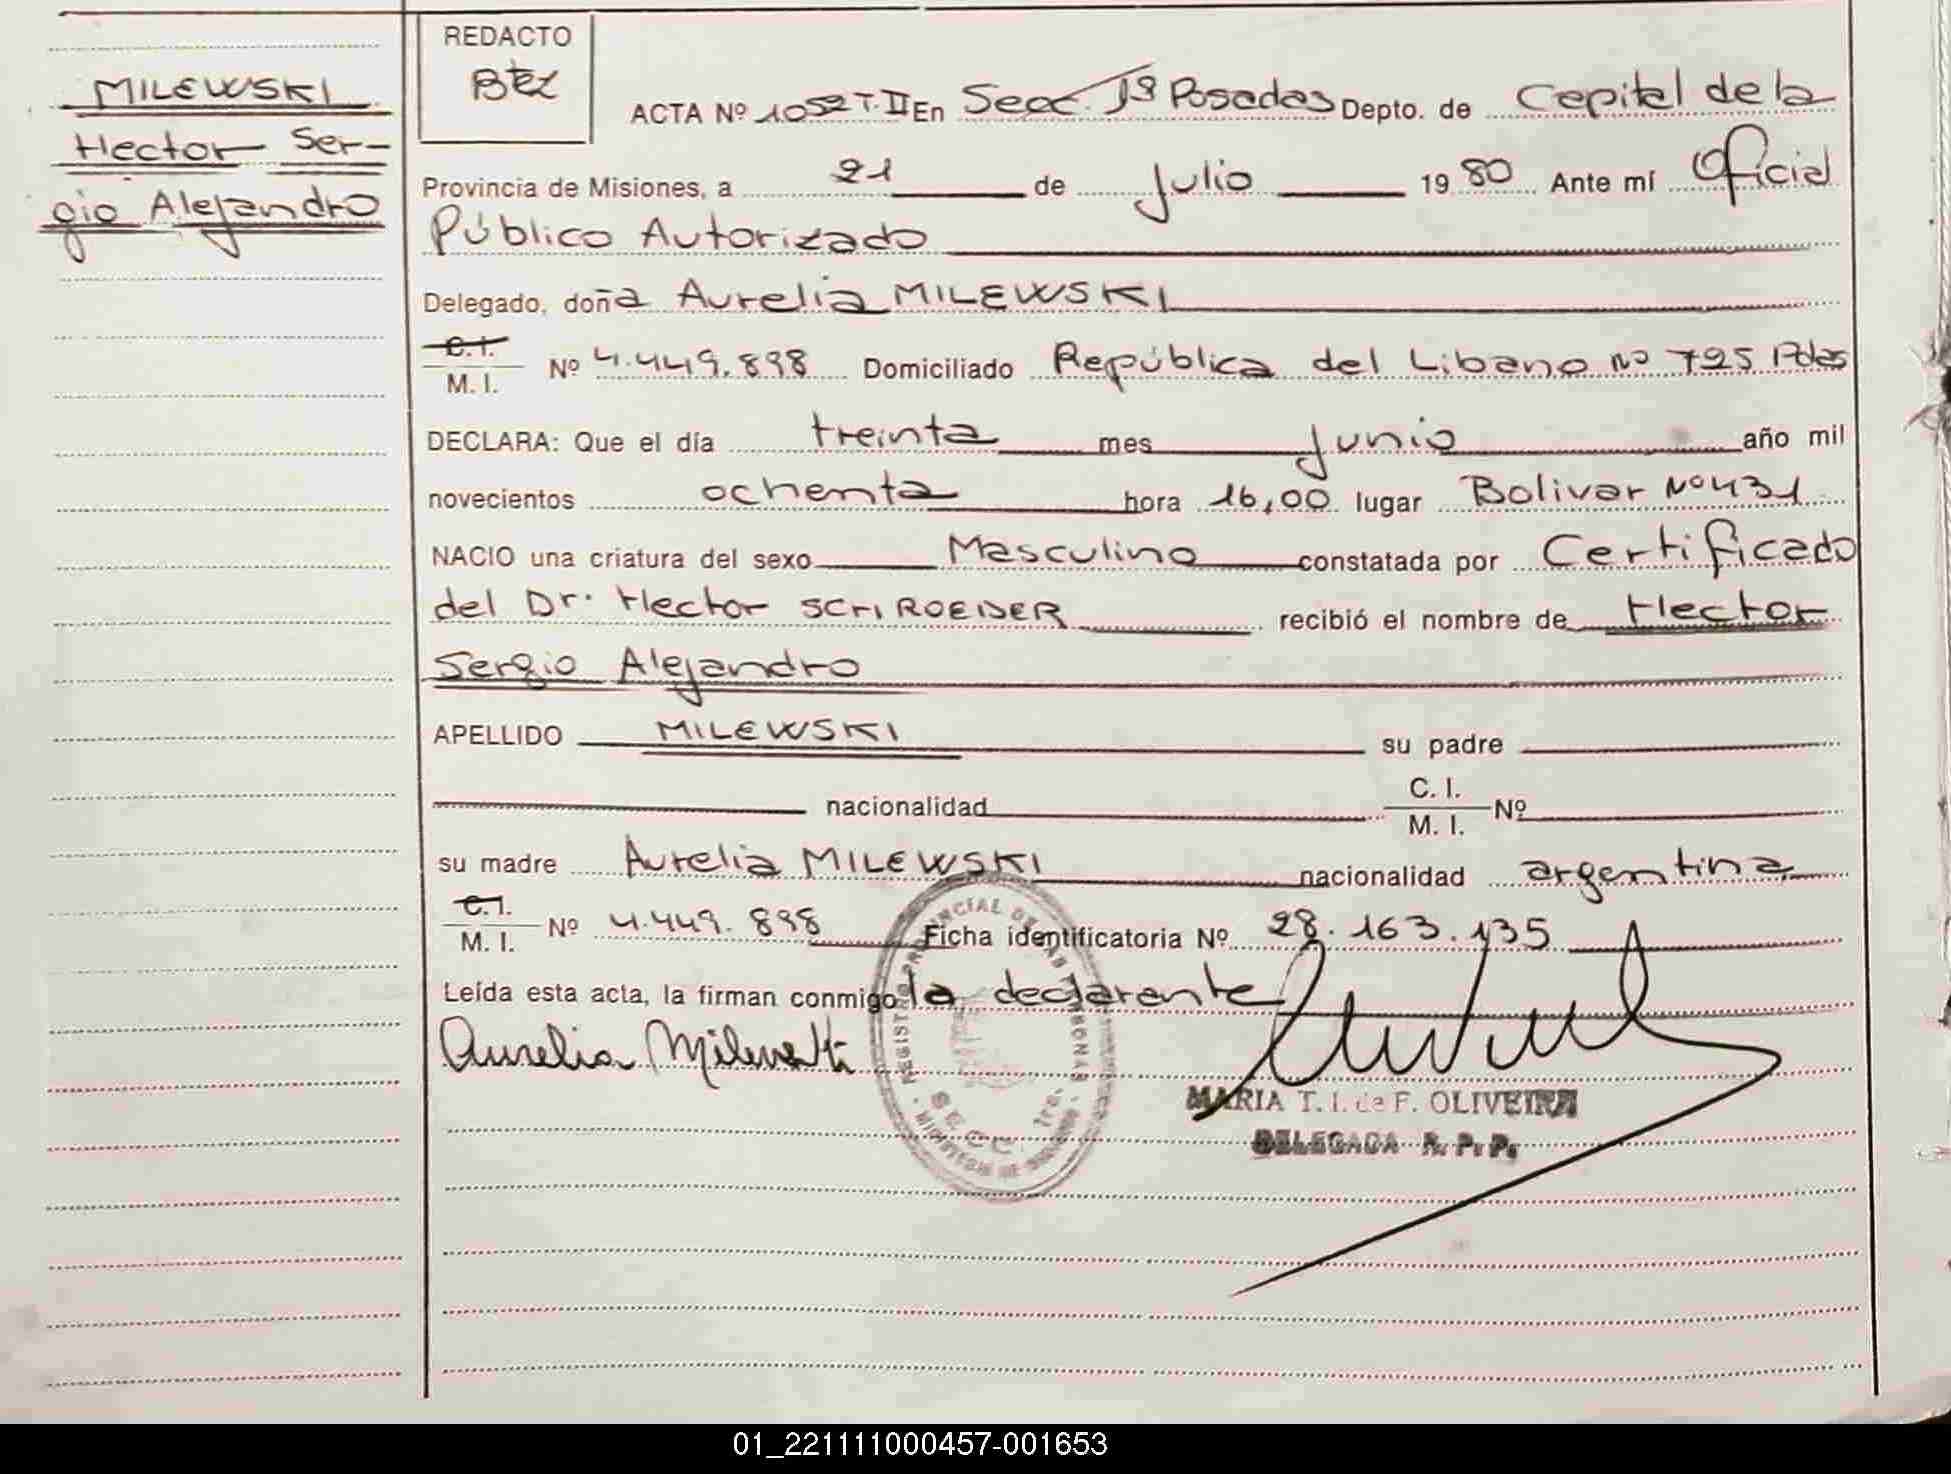 REDACTO
Btez
MILEWSKI
Hector Ser-
gio Alejandro
ACTA Nº 1052 T. II En Secc. 1ª Posadas Depto. de Capital de la
Provincia de Misiones, a 21 de Julio 1980 Ante mí Oficial
Público Autorizado
Delegado, doña Aurelia MILEWSKI
C.I. M. I. Nº 4.449.898 Domiciliado República del Libano Nº 795 Pdas
DECLARA: Que el día treinta mes junio año mil
novecientos ochenta hora 16,00 lugar Bolivar Nº 431
NACIO una criatura del sexo Masculino constatada por Certificado
del Dr. Hector SCHROEDER recibió el nombre de Hector
Sergio Alejandro
APELLIDO MILEWSKI su padre
nacionalidad C. I. M. I. Nº
su madre Aurelia MILEWSKI nacionalidad argentina
C.I. M. I. Nº 4.449.898 Ficha identificatoria Nº 28.163.135
Leída esta acta, la firman conmigo la declarante
Aurelia Milewski
REGISTRO PROVINCIAL DE LAS PERSONAS
SECC. 1ra.
MINISTERIO DE GOBIERNO
MARIA T. I. de F. OLIVEIRA
DELEGADA R. P. P.
01_221111000457-001653